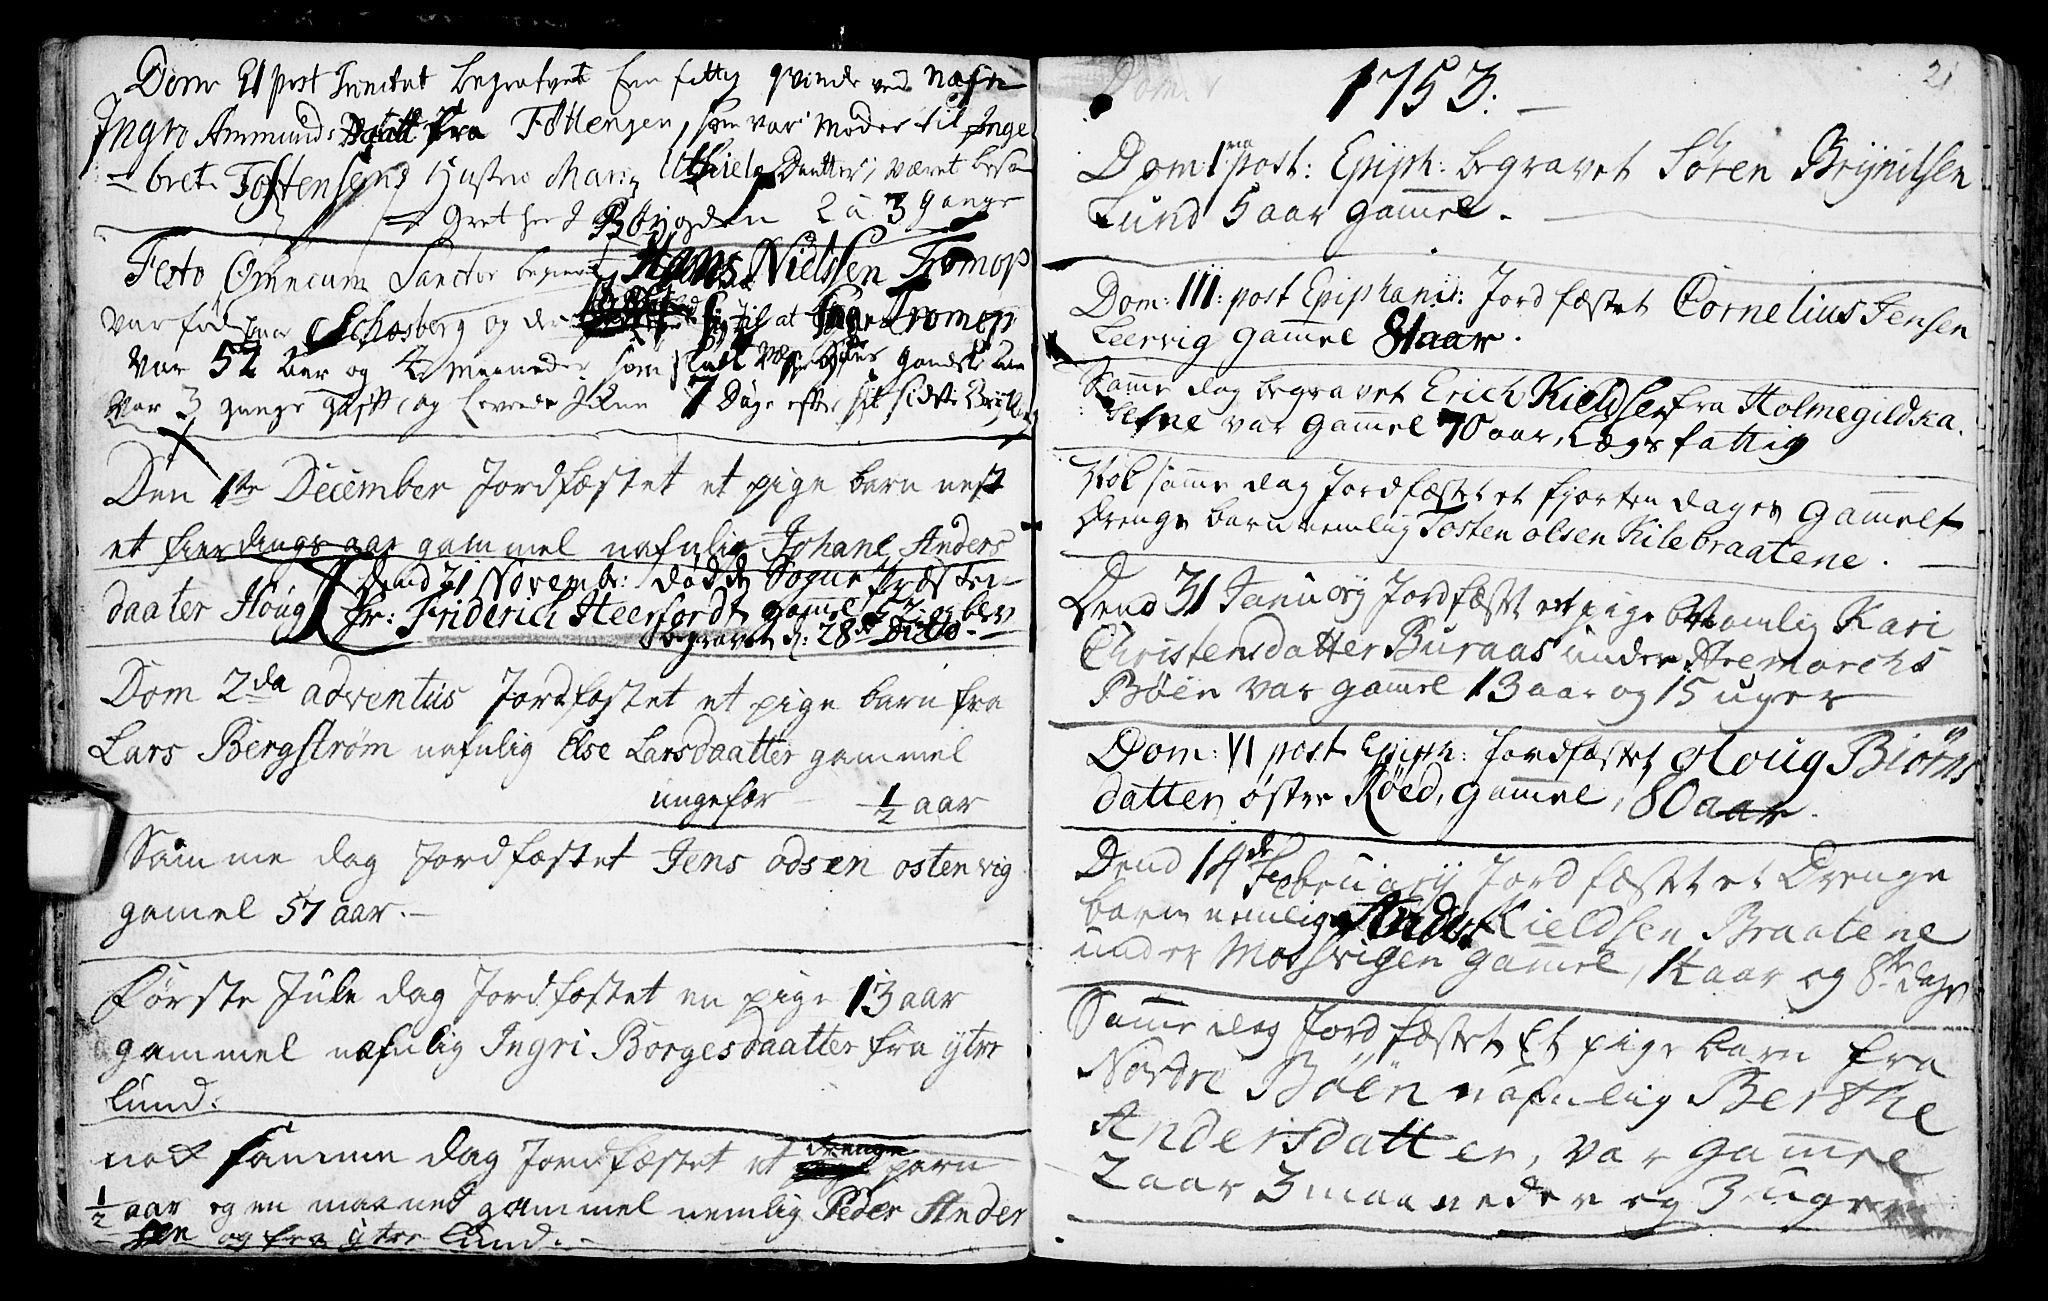 Dom 21 post Trinitat begravet Een fattig qvinde ved nafn
Ingro Ammunds Daatt fra Tøttengen, som var Moder til Inge
bret Tostensens Hustru Marie Datter, været besø
get her i Bøygden 2 à 3 gange
Festo Omnium Sanctor begravet Hans Nielssen Tromop
var fød paa Schosberg og
var 52 aar og 4 Maaneder som skall være
var 3 gange gift, og levede ikun 7 Dage efter sit sidste Bryllup
Den 1te December Jordfæstet et pige barn nest
et fierdings aar gammel nafnlig Johane Anders
daater Houg
Dend 21 Novembr: døde Sogne Præsten
Hr: Friderich Heerfordt gammel og blev
begravet d: 28de Dito.
Dom 2da adventus Jordfæstet et pige barn fra
Lars Bergstrøm nafnlig Else Larsdaatter gammel
ungefær 1/2 aar
Samme dag Jordfæstet Jens odsen ostenvig
gamel 57 aar.
Første Jule dag Jordfæstet en pige 13 aar
gammel nafnlig Ingri Borgesdaatter fra ytre
Lund.
nok samme dag Jordfæstet et drenge parn
1/2 aar og en maaned gammel nemlig Peder Ander
sen og fra ytre Lund.
21
Dom
1753.
Dom: 1ma post: Epiph: begravet Søren Brynitsen
Lund 5 aar gamel.
Dom: III: post Epiphanii: Jordfæstet Cornelius Jensen
Leervig gamel 81 aar.
Samme dag begravet Erich Kieldsen fra Holmegildka
lefne var gamel 70 aar, Lægs fattig
Nok samme dag Jordfæstet et fjorten dages gamelt
drenge barn nemlig Tosten olsen Kilebraatene.
Dend 31 January Jordfæstet et pige nemlig Kari
Christensdatter Buraas under Aremarchs
Bøen var gamel 13 aar og 15 uger
Dom: VI post Epiph: Jordfæstet Aloug Biørns
datter østre Røed, gamel, 80 aar.
Dend 14de February Jordfæstet et Drenge
barn nemlig Anders Kieldsen Braatene
under Mosvigen gamel, 1 aar og 8te dage
Samme dag Jordfæstet Et pige barn fra
Nordre Bøen nafnlig Berthe
Andersdatter, var gamel
2 aar 3 maaneder og 3 uger